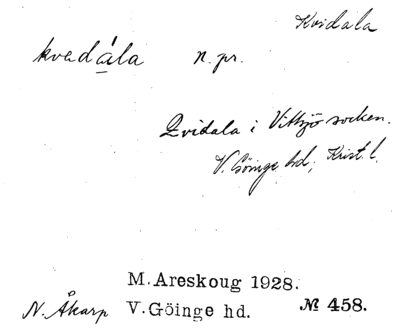 Kvidala
kvadála n. pr.
Qvidala i Vittsjö socken.
V. Göinge hd, Krist. l.
M. Areskoug 1928.
N. Åkarp V. Göinge hd. № 458.